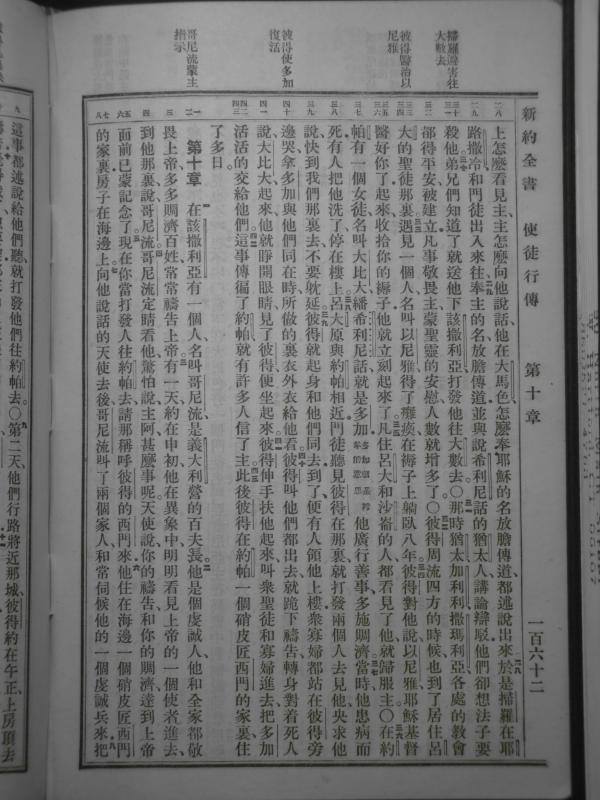 新約全書 使徒行傳 第十章 一百六十二
掃羅潛害往大數去
彼得醫治以尼雅
彼得使多加復活
哥尼流蒙主指示
上怎麼看見主主怎麼向他說話他在大馬色怎麼奉耶穌的名放膽傳道都述說出來於是掃羅在耶
路撒冷和門徒出入來往奉主的名放膽傳道並與說希利尼話的猶太人講論辯駁他們卻想法子要
殺他弟兄們知道了就送他下該撒利亞打發他往大數去〇那時猶太加利利撒瑪利亞各處的教會
都得平安被建立凡事敬畏主蒙聖靈的安慰人數就增多了〇彼得周流四方的時候也到了居住呂
大的聖徒那裏遇見一個人名叫以尼雅得了癱瘓在褥子上躺臥八年彼得對他說以尼雅耶穌基督
醫好你了起來收拾你的褥子他就立刻起來了凡住呂大和沙崙的人都看見了他就歸服主〇在約
帕有一個女徒名叫大比大繙希利尼話就是多加 他廣行善事多施賙濟當時他患病而
死有人把他洗了停在樓上呂大原與約帕相近門徒聽見彼得在那裏就打發兩個人去見他央求他
說快到我們那裏去不要躭延彼得就起身和他們同去到了便有人領他上樓衆寡婦都站在彼得旁
邊哭拿多加與他們同在時所做的裏衣外衣給他看彼得叫他們都出去就跪下禱告轉身對着死人
說大比大起來他就睜開眼睛見了彼得便坐起來彼得伸手扶他起來叫衆聖徒和寡婦進去把多加
活活的交給他們這事傳徧了約帕就有許多人信了主此後彼得在約帕一個硝皮匠西門的家裏住
了多日
第十章 在該撒利亞有一個人名叫哥尼流是義大利營的百夫長他是個虔誠人他和全家都敬
畏上帝多多賙濟百姓常常禱告上帝有一天約在申初他在異象中明明看見上帝的一個使者進去
到他那裏說哥尼流哥尼流定睛看他驚怕說主阿甚麼事呢天使說你的禱告和你的賙濟達到上帝
面前已蒙記念了現在你當打發人往約帕去請那稱呼彼得的西門來他住在海邊一個硝皮匠西門
的家裏房子在海邊上向他說話的天使去後哥尼流叫了兩個家人和常伺候他的一個虔誠兵來把
這事都述說給他們聽就打發他們往約帕去〇第二天他們行路將近那城彼得約在午正上房頂去